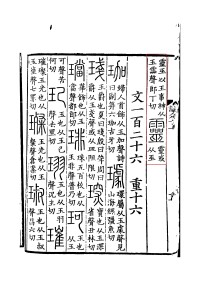 巫以玉事神从玉霝聲郎丁切 靈 靈或从巫
文一百二十六 重十六
珈 婦人首飾从玉加聲詩曰副笄六珈古牙切 璩 環屬从玉豦聲見山海經彊魚切
琖 玉爵也夏曰琖殷曰斝周曰爵从玉戔聲或从皿阻限切 琛 寶也从玉深省聲丑林切
璫 華飾也从玉當聲都郎切 琲 珠五百枚也从玉非聲普乃切 珂 玉也从玉
可聲苦何切 玘 玉也从玉己聲去里切 珝 玉也从玉羽聲況主切 璀
璀璨玉光也从玉崔聲七罪切 璨 玉光也从玉粲聲倉案切 琡 玉也从玉叔聲昌六切